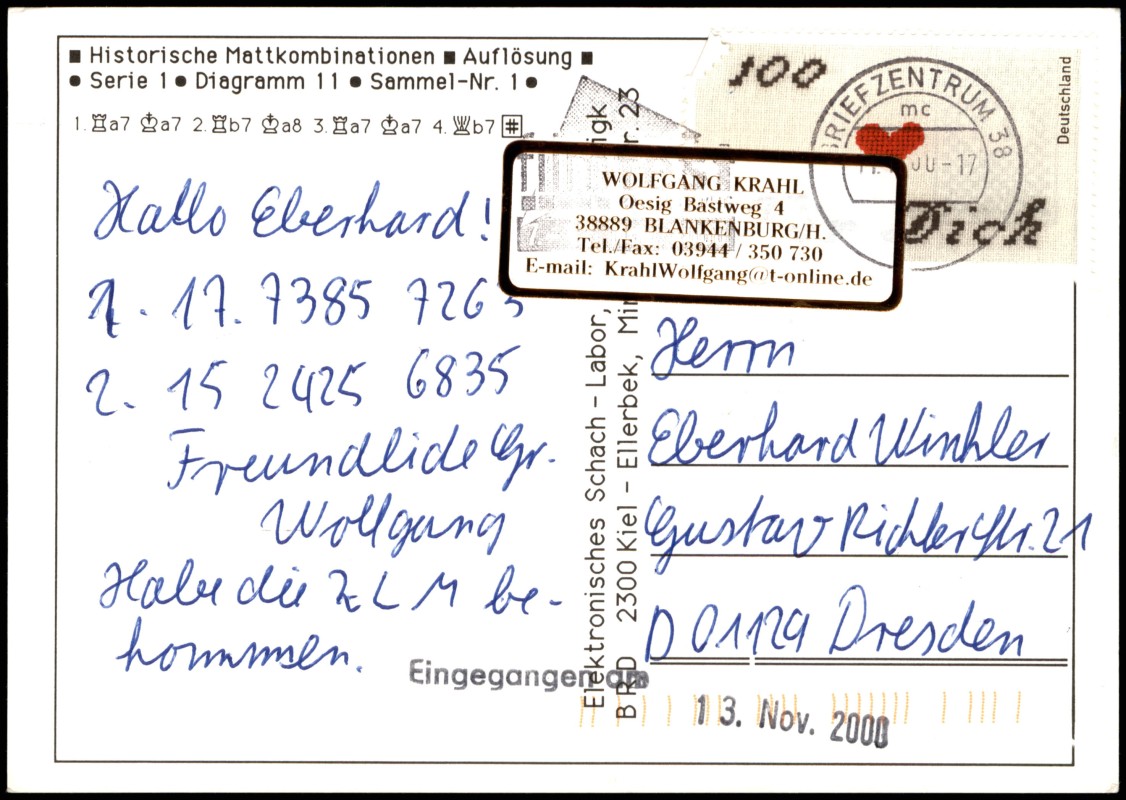 ■ Historische Mattkombinationen ■ Auflösung ■
● Serie 1 ● Diagramm 11 ● Sammel-Nr. 1 ●
1. ♖a7 ♔a7 2. ♖b7 ♔a8 3. ♖a7 ♔a7 4. ♕b7 #
Hallo Eberhard!
1. 17. 7385 7263
2. 15 2425 6835
Freundliche Gr.
Wolfgang
Habe die ZLM be-
kommen.
Eingegangen am
13. Nov. 2000
Elektronisches Schach-Labor,
BRD 2300 Kiel - Ellerbek,
r. 23
WOLFGANG KRAHL
Oesig Bastweg 4
38889 BLANKENBURG/H.
Tel./Fax: 03944 / 350 730
E-mail: KrahlWolfgang@t-online.de
100
Deutschland
Dich
BRIEFZENTRUM 38
mc
00-17
Herrn
Eberhard Winkler
Gustav Richterstr. 21
D 01129 Dresden